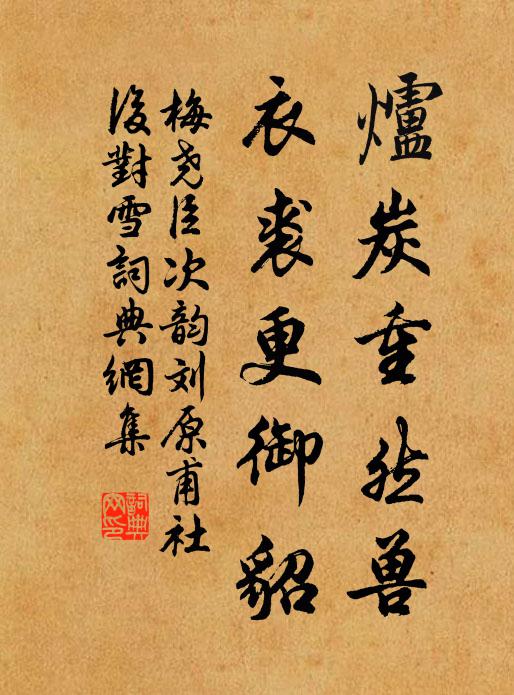 爐炭重然兽
衣裘更御貂
梅尧臣次韵刘原甫社
後對雪詞典網集
詞典网印